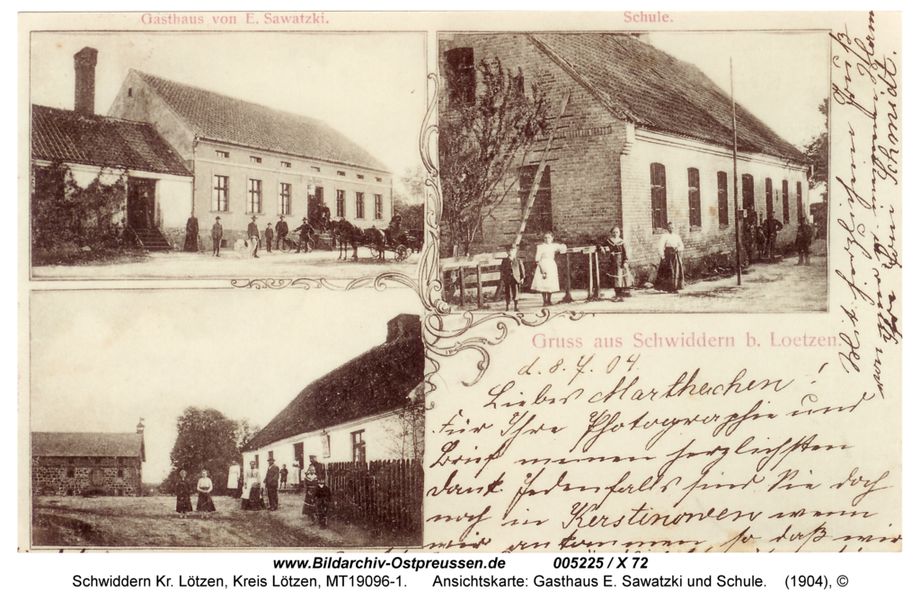 Gasthaus von E. Sawatzki.
Schule.
Gruss aus Schwiddern b. Loetzen.
d. 8. 7. 04.
Liebes Marthachen!
Für Ihre Photographie und
Brief meinen herzlichsten
dank. Jedenfalls sind Sie doch
noch in Kerstinowen wenn
wir ankommen so daß wir
Mit herzlichem Gruß
von mir u.
Ihre Schmidt.
www.Bildarchiv-Ostpreussen.de 005225 / X 72
Schwiddern Kr. Lötzen, Kreis Lötzen, MT19096-1. Ansichtskarte: Gasthaus E. Sawatzki und Schule. (1904), ©